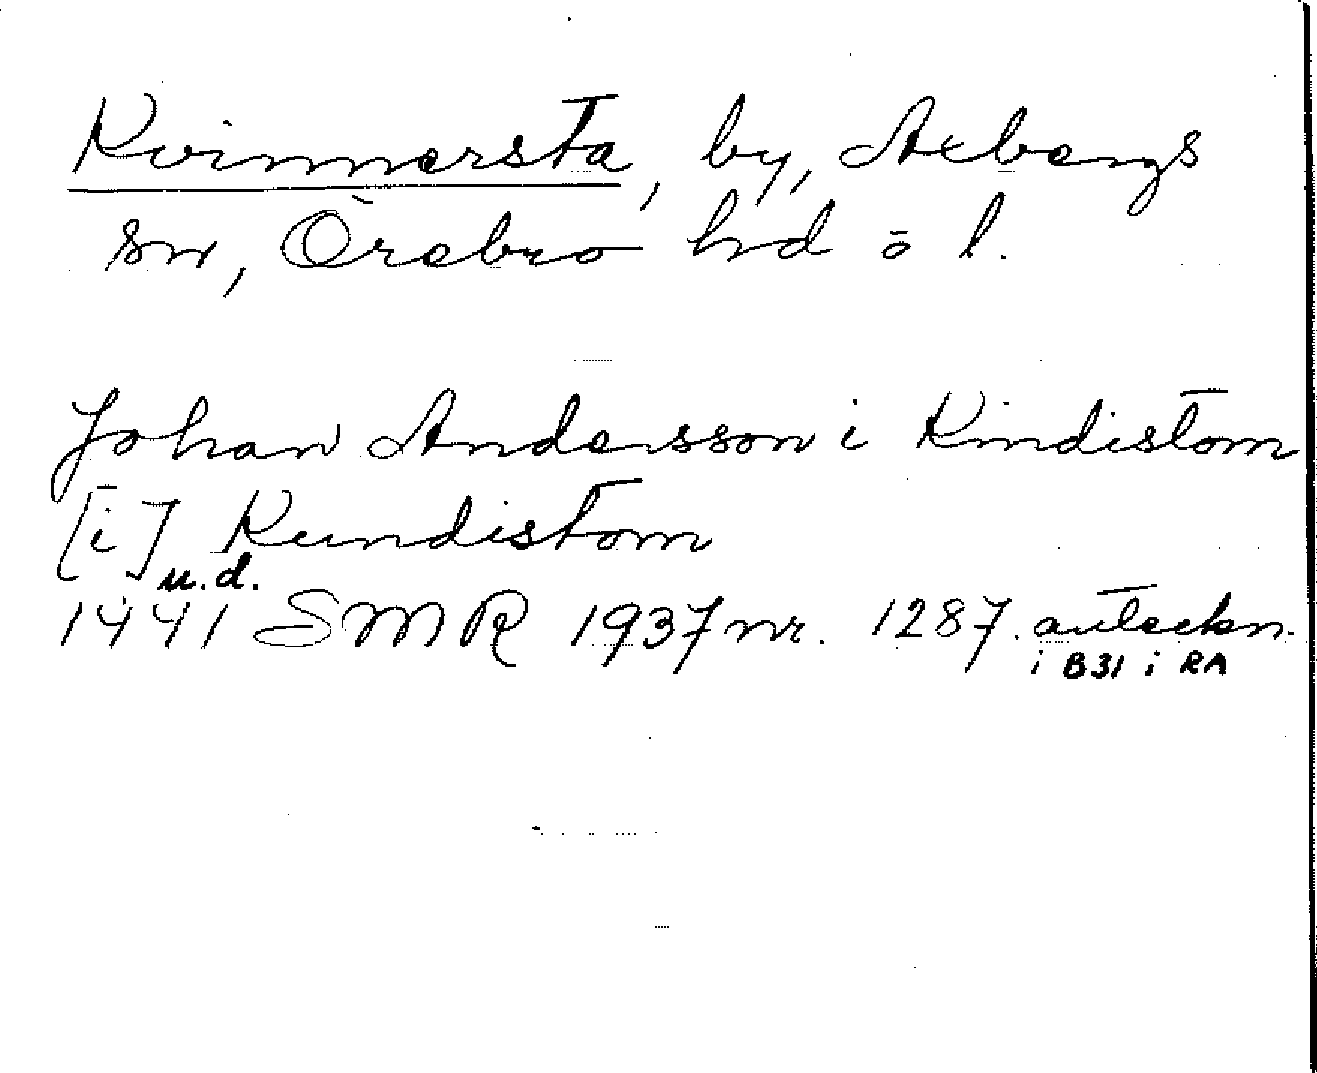 Kvinnersta, by, Axbergs
sn, Örebro hd o l.
Johan Andersson i Kindistom
[i] Kundistom
u.d.
1441 SMR 1937 nr. 1287. anteckn.
i B31 i RA